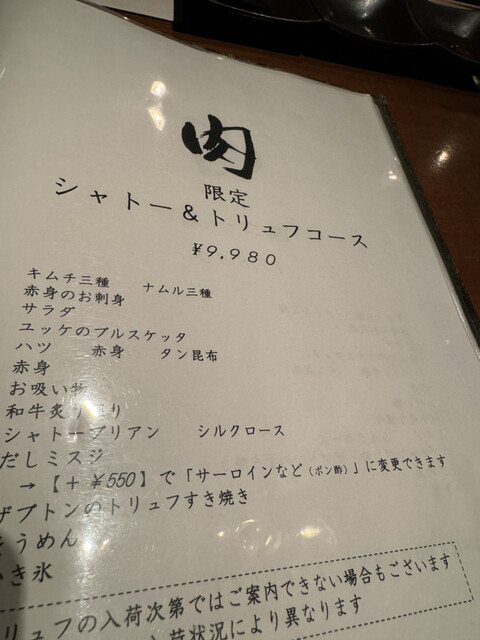 肉
限定
シャトー＆トリュフコース
¥9,980
キムチ三種　ナムル三種
赤身のお刺身
サラダ
ユッケのブルスケッタ
ハツ　赤身　タン昆布
赤身
お吸い物
和牛炙り
シャトーブリアン　シルクロース
だしミスジ
→【＋¥550】で「サーロインなど（ポン酢）」に変更できます
ザブトンのトリュフすき焼き
そうめん
き氷
リュフの入荷次第ではご案内できない場合もございます
荷状況により異なります